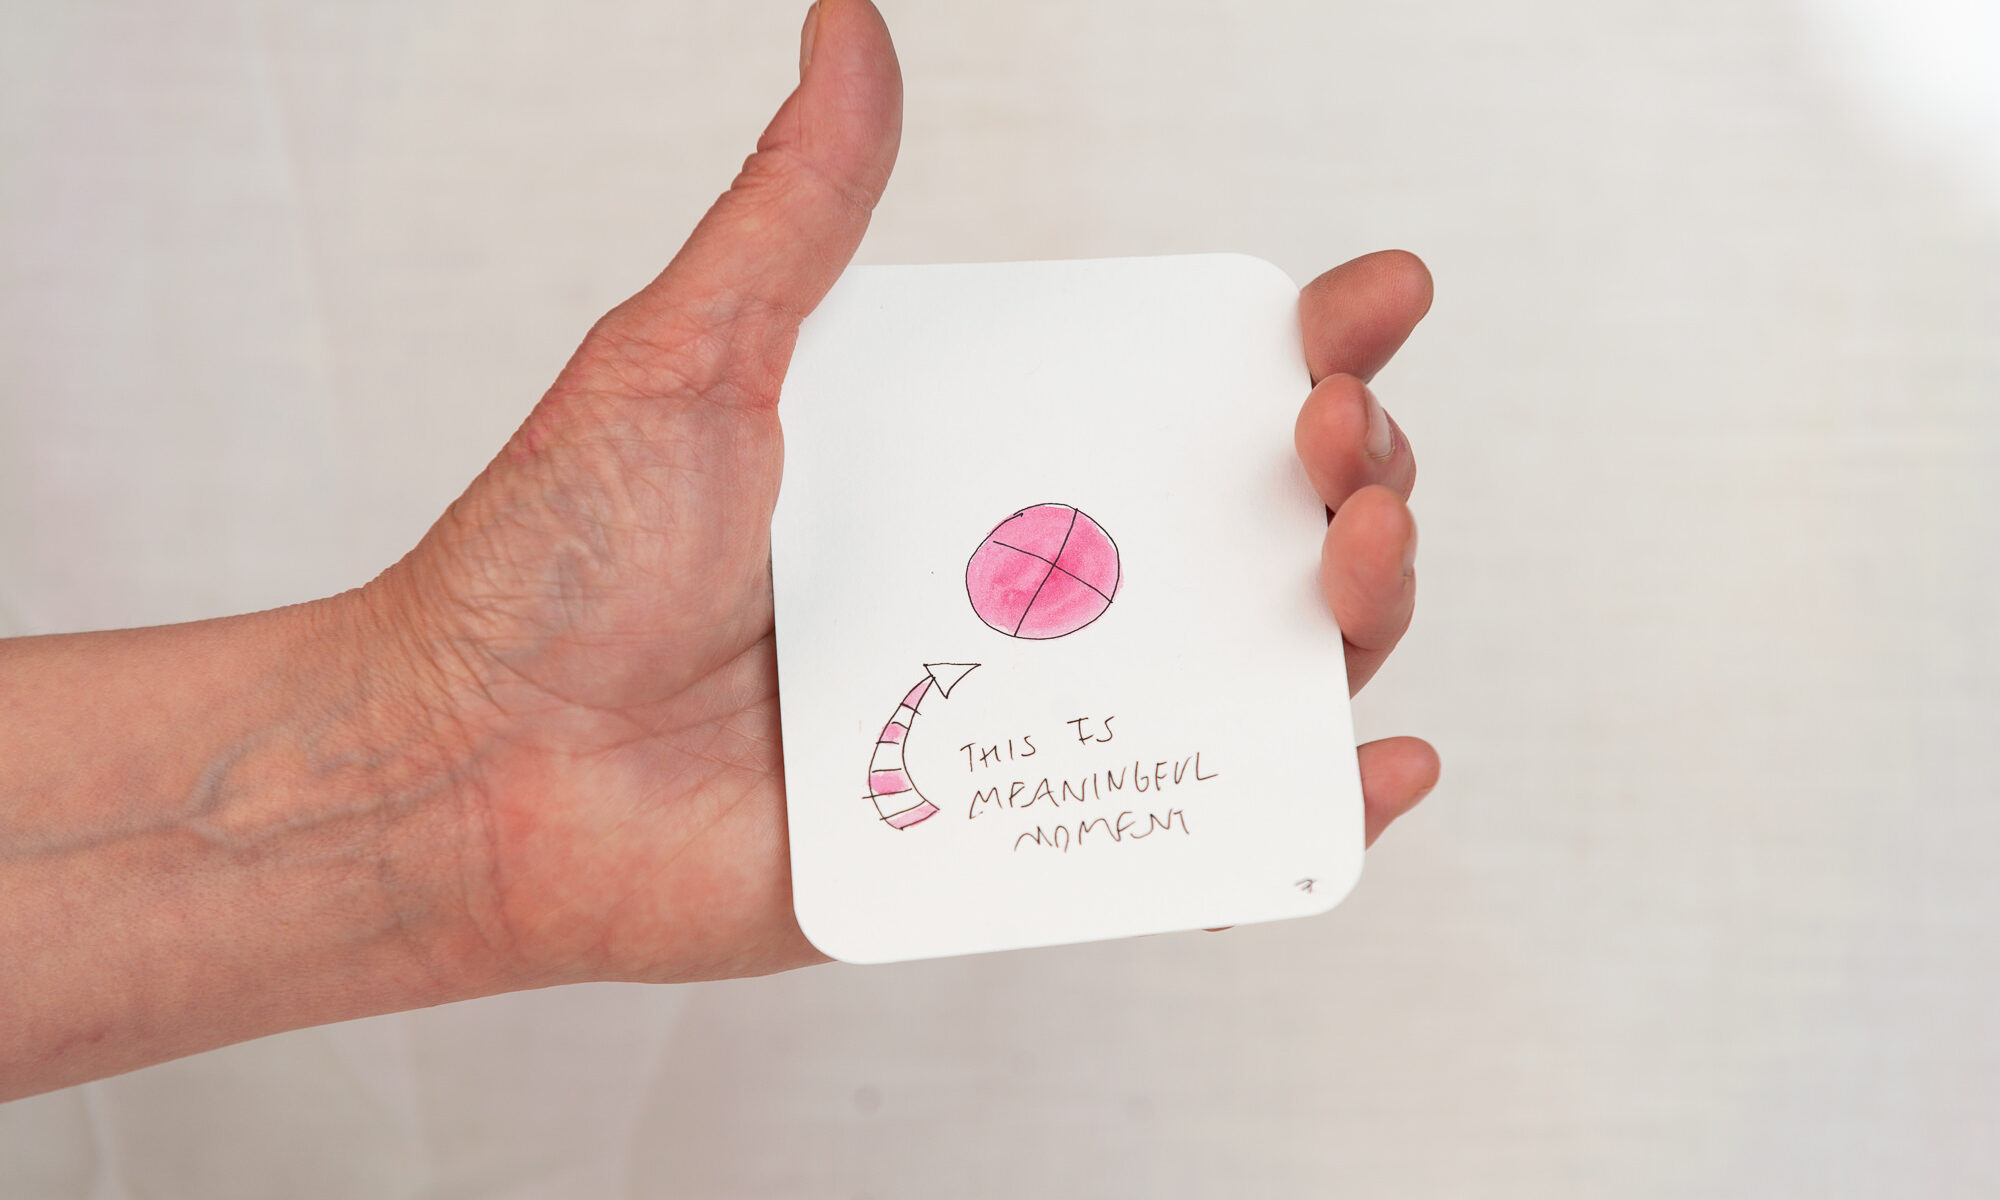 THIS IS
MEANINGFUL
MOMENT